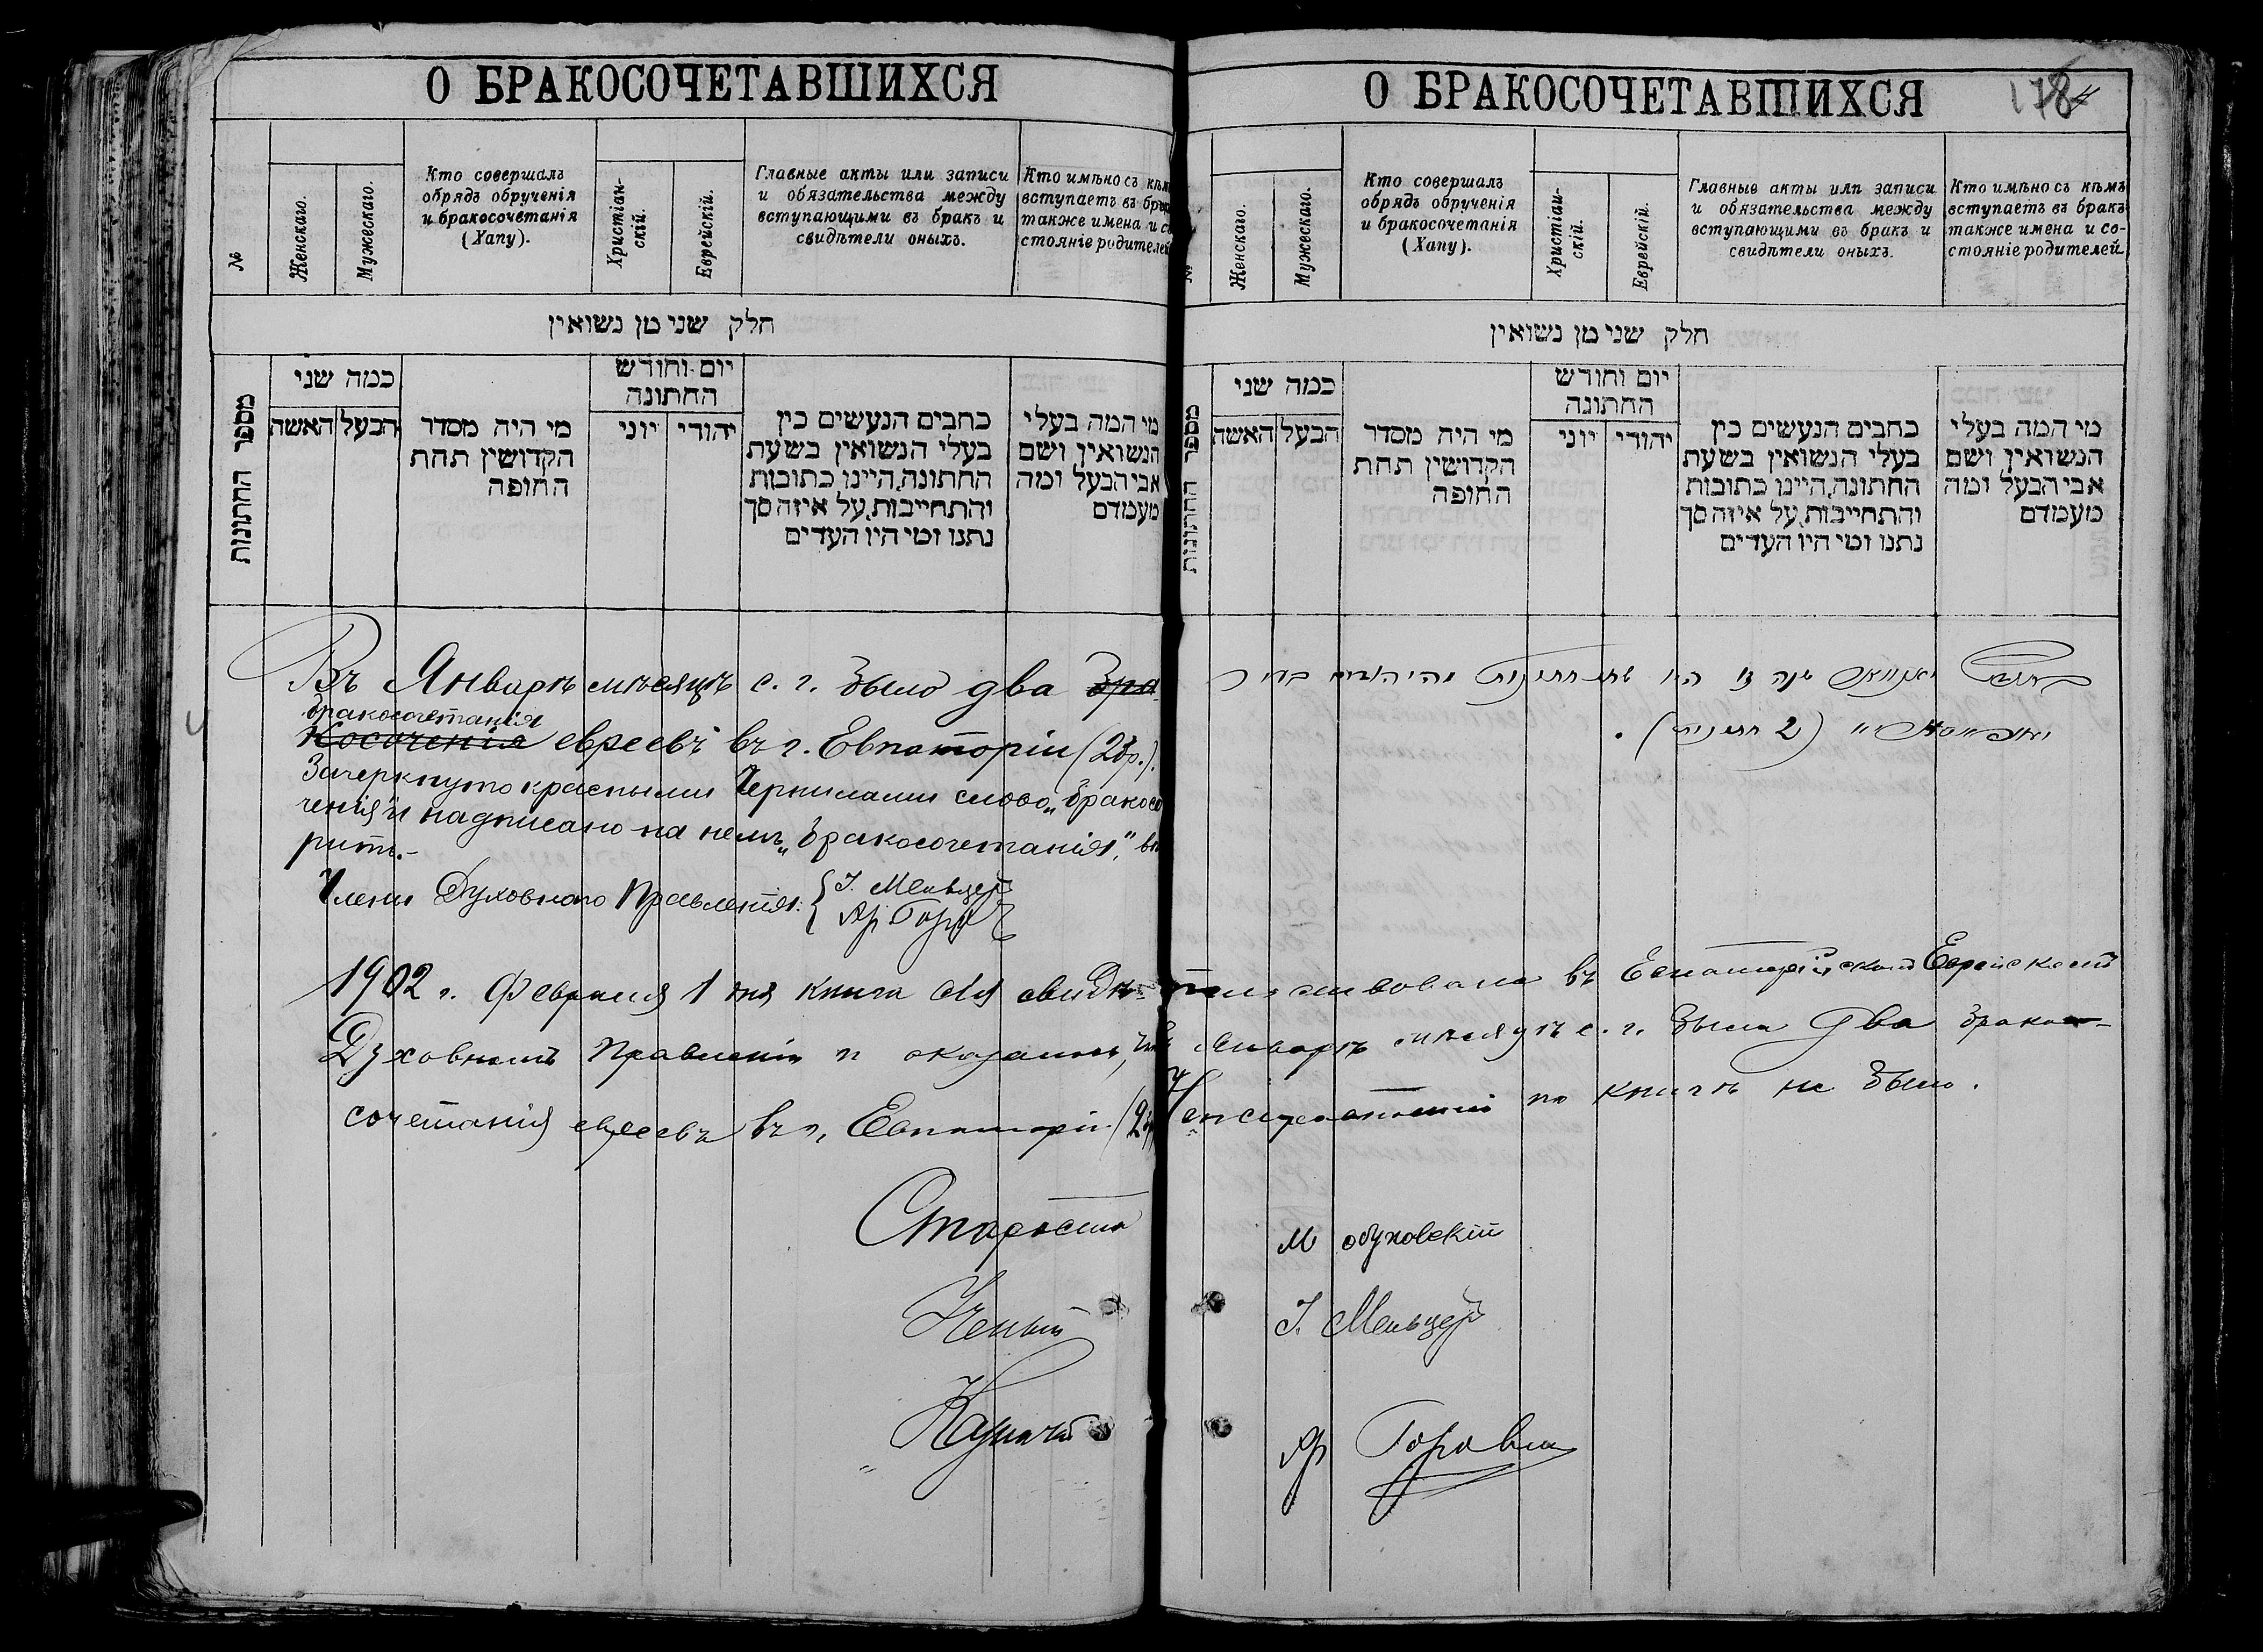 О БРАКОСОЧЕТАВШИХСЯ
№
Женскаго.
Мужескаго.
Кто совершалъ
обрядъ обрученія
и бракосочетанія
(Хапу).
Христіан-
скій.
Еврейскій.
Главные акты или записи
и обязательства между
вступающими въ бракъ и
свидѣтели оныхъ.
Кто имѣно съ кѣм
вступаетъ въ бра
также имена и с
стояніе родителей
חלק שני מן נשואין
מספר החתונות
כמה שני
האשה
הבעל
מי היה מסדר
הקדושין תחת
החופה
יום וחודש
החתונה
יוני
יהודי
כתבים הנעשים בין
בעלי הנשואין בשעת
החתונה, היינו כתובות
והתחייבות, על איזה סך
נתנו ומי היו העדים
מי המה בעלי
הנשואין ושם
אבי הבעל ומה
מעמדם
Въ Январѣ мѣсяцѣ с. г. было два бра
бракосочетанія
косоченія евреевъ въ г. Евпаторіи (2 бр.).
Зачеркнуто красными чернилами слово „бракосо
ченія" и надписано на немъ „бракосочетанія", вѣ
рить.-
Члены Духовнаго Правленія: { І. Мельцеръ
1902 г. Февраля 1 дня книга сія свидѣ-
Духовномъ Правленіи и оказалось, что
сочетанія евреевъ въ г. Евпаторіи (2 бр)
Староста
Ученый
Казначей
О БРАКОСОЧЕТАВШИХСЯ
178
№
Женскаго.
Мужескаго.
Кто совершалъ
обрядъ обрученія
и бракосочетанія
(Хапу).
Христіан-
скій.
Еврейскій.
Главные акты или записи
и обязательства между
вступающими въ бракъ и
свидѣтели оныхъ.
Кто имѣно съ кѣмъ
вступаетъ въ бракъ
также имена и со-
стояніе родителей
חלק שני מן נשואין
מספר החתונות
כמה שני
האשה
הבעל
מי היה מסדר
הקדושין תחת
החופה
יום וחודש
החתונה
יוני
יהודי
כתבים הנעשים בין
בעלי הנשואין בשעת
החתונה, היינו כתובות
והתחייבות, על איזה סך
נתנו ומי היו העדים
מי המה בעלי
הנשואין ושם
אבי הבעל ומה
מעמדם
שנה זו היו שתי חתונות
(2 חתונות).
тельствована въ Евпаторійскомъ Еврейскомъ
въ Январѣ мѣсяцѣ с. г. было два брако-
по книгѣ не было.
М Обуховскій
І. Мельцеръ